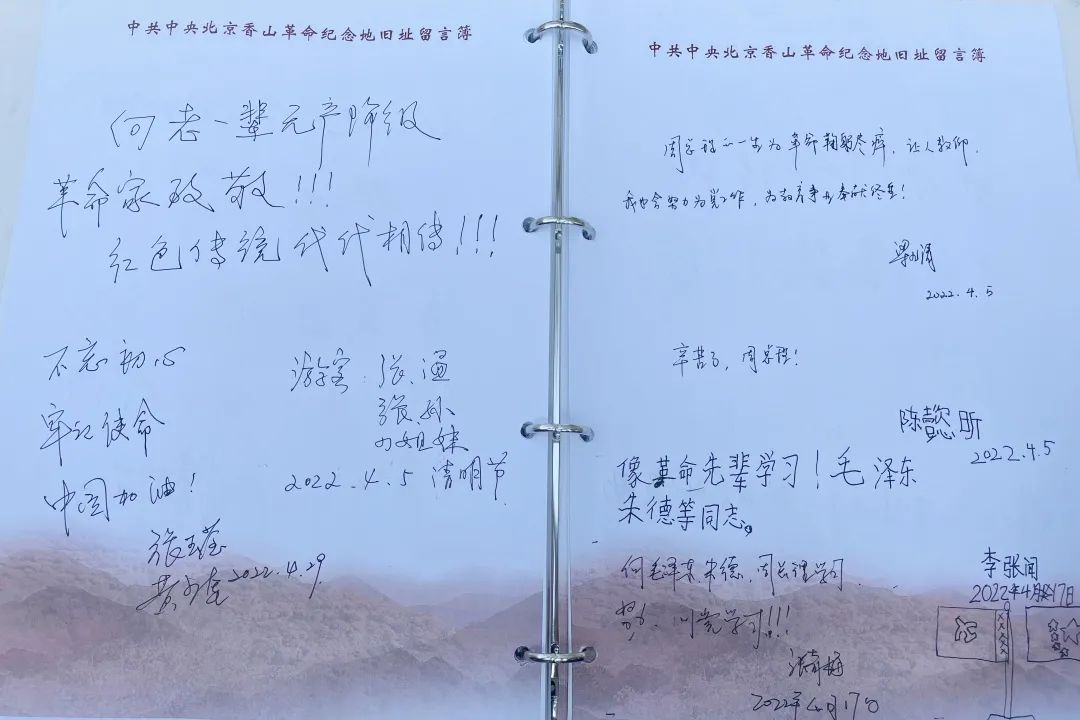 中共中央北京香山革命纪念地旧址留言簿
向老一辈无产阶级
革命家致敬!!!
红色传统代代相传!!!
不忘初心
牢记使命
中国加油!
张玉莹
2022.4.29
游客:张
张 孙
姐妹
2022.4.5 清明节
中共中央北京香山革命纪念地旧址留言簿
周总理一生为革命鞠躬尽瘁,让人敬仰.
我也会努力为党工作,为教育事业奉献终生!
梁
2022.4.5
辛苦了,周总理!
陈懿昕
2022.4.5
像革命先辈学习!毛泽东
朱德等同志。
李张闻
2022年4月17日
向毛泽东,朱德,周总理学习.
向党学习!!!
2022年4月17日